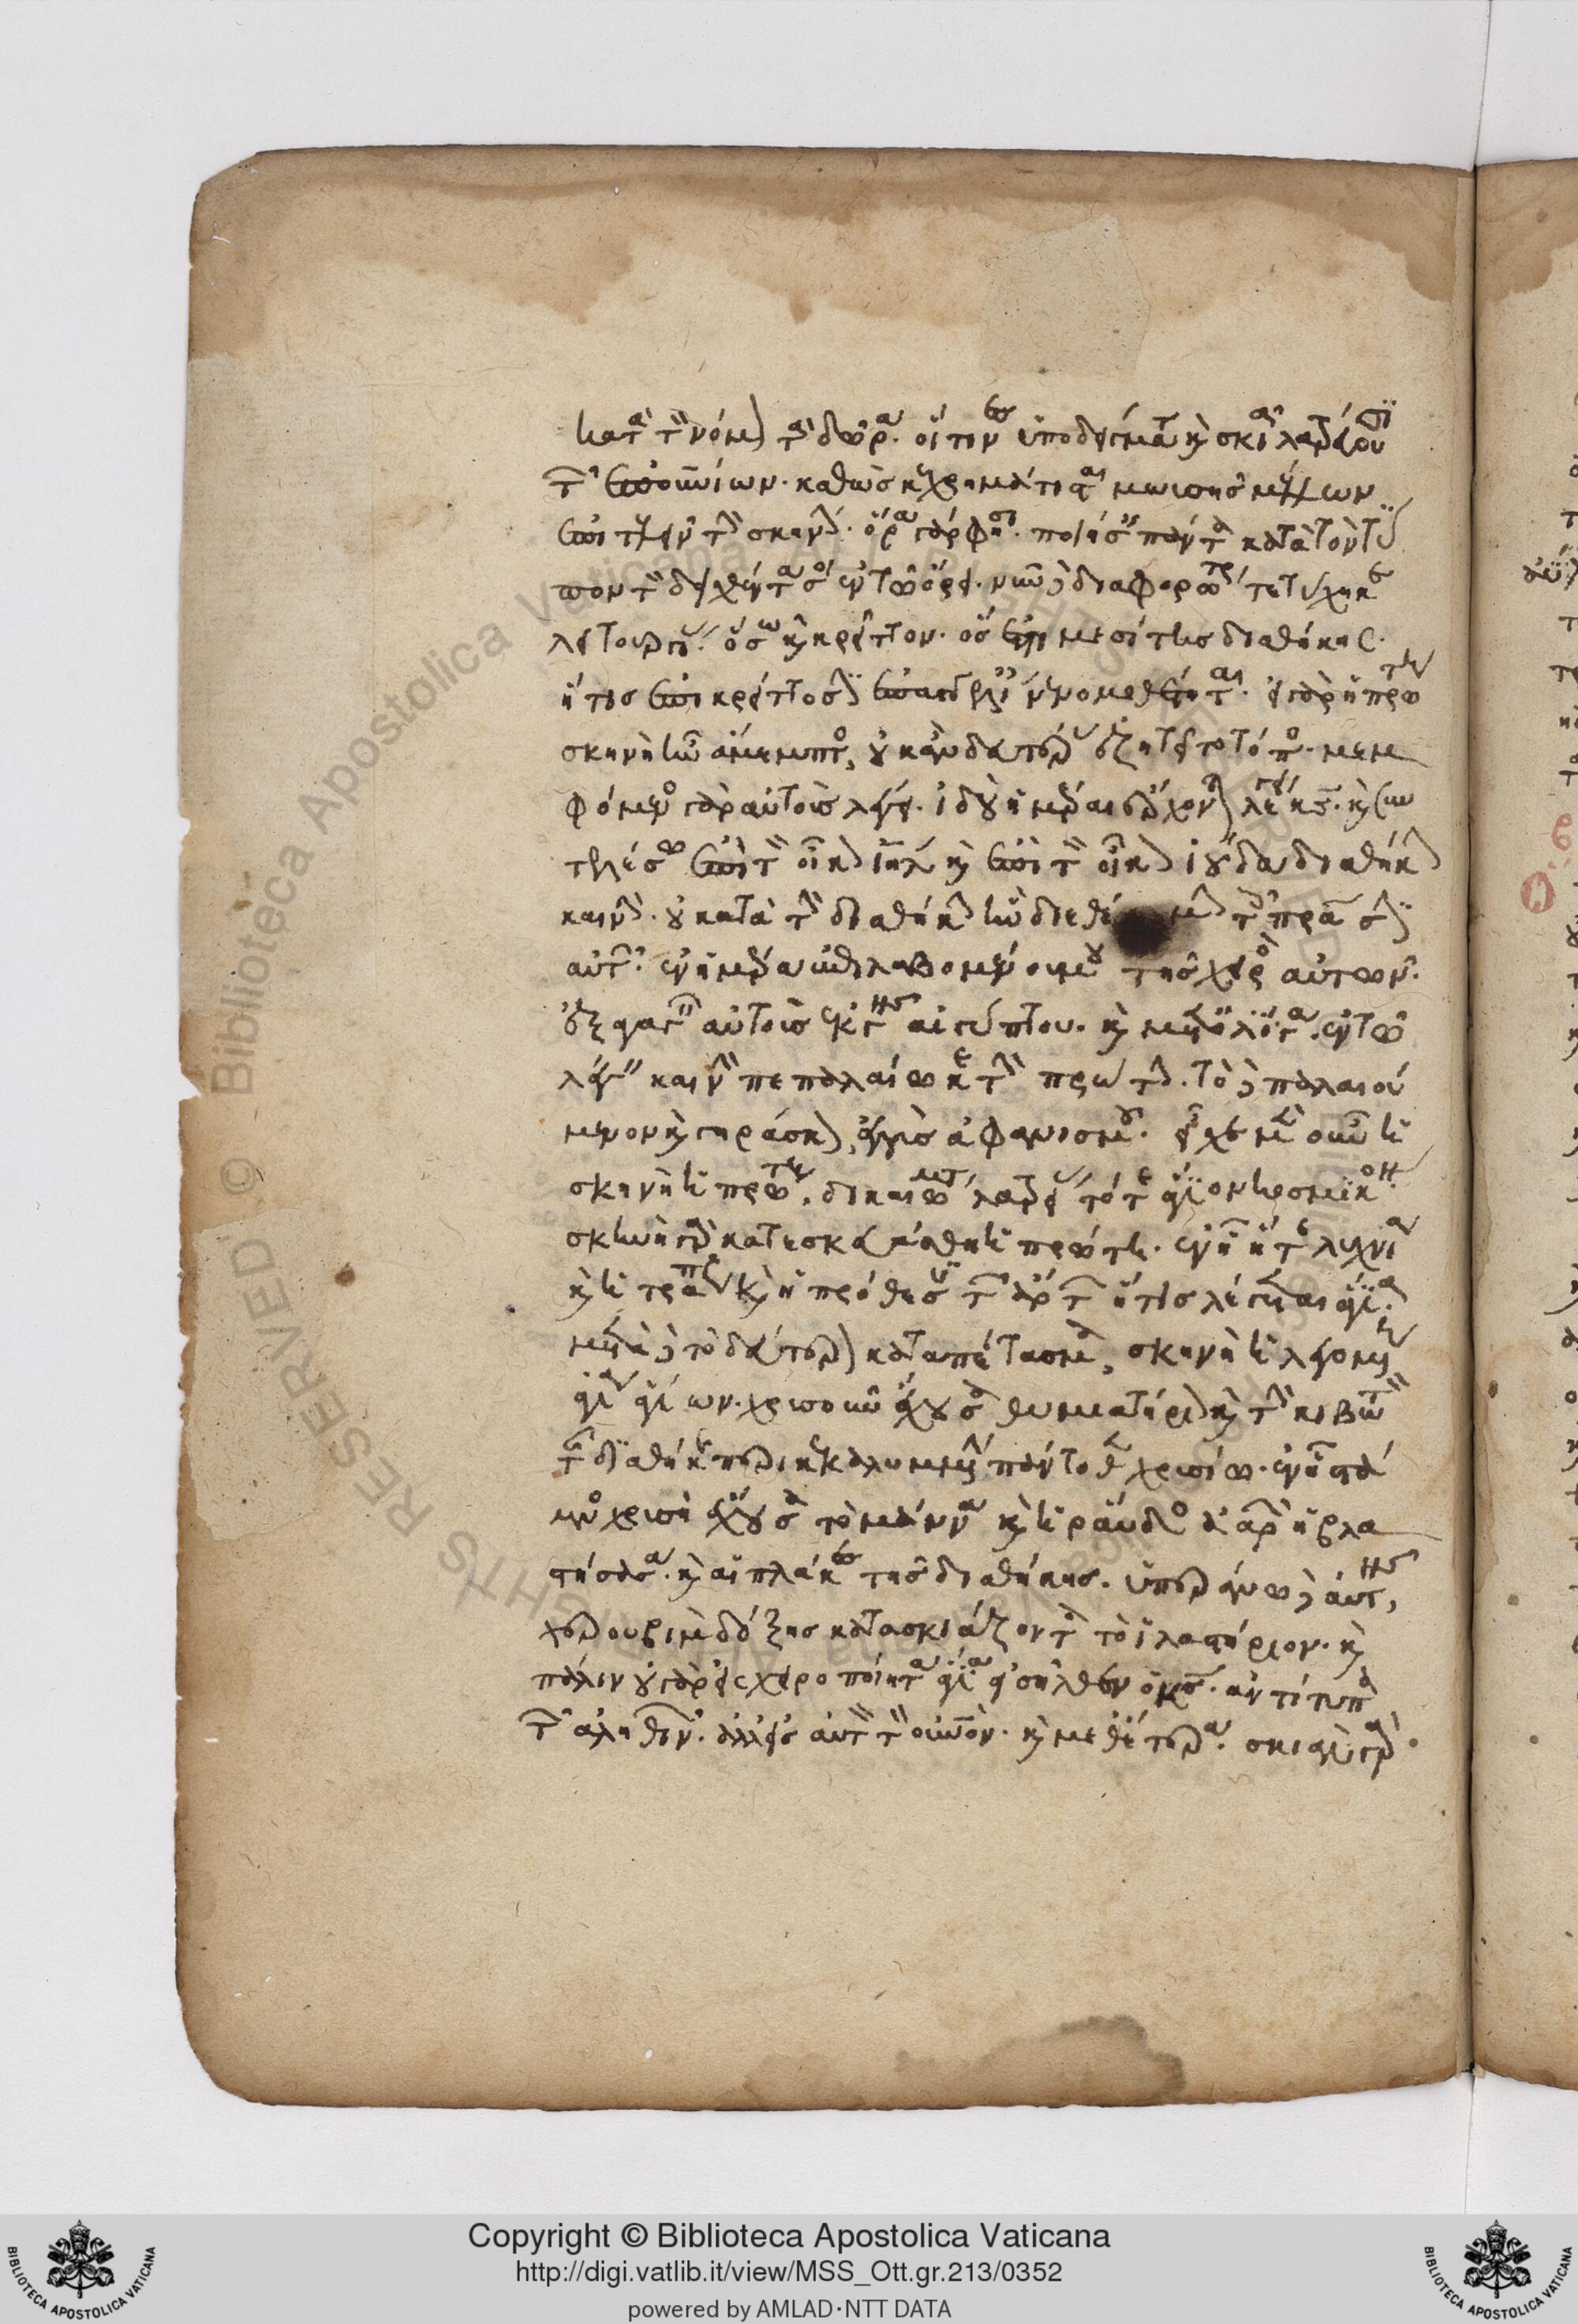 κατὰ τὸν νόμον τὰ δῶρα. οἵτινες ὑποδείγματι καὶ σκιᾷ λατρεύουσι
τῶν ἐπουρανίων. καθὼς κεχρημάτισται μωισῆς μέλλων
ἐπιτελεῖν τὴν σκηνήν. ὅρα γάρ φησι. ποιήσεις πάντα κατὰ τὸν τύ
πον τὸν δειχθέντα σοι ἐν τῷ ὄρει. νῦν δὲ διαφορωτέρας τετύχηκε
λειτουργίας. ὅσω καὶ κρείττονος ἐστι μεσίτης διαθήκης.
ἥτις ἐπι κρείττοσιν ἐπαγγελίαις νενομοθέτηται. εἰ γὰρ ἡ πρώτη
σκηνὴ ἦν ἄμεμπτος, οὐκ ἂν δευτέρας ἐζητεῖτο τόπος. μεμ
φόμενος γὰρ αὐτοῖς λέγει. ἰδοὺ ἡμέραι ἔρχονται λέγει κς. καὶ συν
τελέσω ἐπὶ τὸν οἶκον ιηλ καὶ ἐπὶ τὸν οἶκον ἰούδα διαθήκην
καινήν. οὐ κατὰ τὴν διαθήκην ἣν διεθέμην τοῖς πράσιν
αὐτῶν. ἐν ἡμέρα ἐπιλαβομένου μου τῆς χειρὸς αὐτῶν.
ἐξαγαγεῖν αὐτοὺς ἐκ γῆς αἰγύπτου. καὶ μετ' ὀλίγα. ἐν τῷ
λέγειν καινὴν πεπαλαίωκε τὴν πρώτην. τὸ δὲ παλαιού
μενον καὶ γηράσκον, ἐγγὺς ἀφανισμοῦ. εἶχε μὲν οὖν ἡ
σκηνὴ ἡ πρώτη, δικαιώματα λατρείας τό τε ἅγιον κοσμικόν.
σκηνὴ γὰρ κατεσκευάσθη ἡ πρώτη. ἐν ᾗ ἥ τε λυχνία
καὶ ἡ τράπεζα καὶ ἡ πρόθεσις τῶν ἄρτων ἥτις λέγεται ἅγια.
μετὰ δὲ τὸ δεύτερον καταπέτασμα, σκηνὴ ἡ λεγομένη
ἅγια ἁγίων. χρισοῦν ἔχουσα θυμιατήριον καὶ τὴν κιβωτὸν
τῆς διαθήκης περικεκαλυμμένην πάντοθεν χρισίω. ἐν ᾗ στά
μνος χρισῆ ἔχουσα τὸ μάννα καὶ ἡ ράβδος ἀαρὼν ἡ βλα
στήσασα. καὶ αἱ πλάκες τῆς διαθήκης. ὑπεράνω δὲ αὐτῆς,
χερουβὶμ δόξης κατασκιάζοντα τὸ ἱλαστήριον. καὶ
πάλιν οὐ γὰρ εἰς χειροποίητα ἅγια εἰσῆλθεν ὁ χς. ἀντίτυπα
τῶν ἀληθινῶν. ἀλλ' εἰς αὐτὸν τὸν οὐνον. καὶ μεθ' ἕτερα. σκιὰν γὰρ